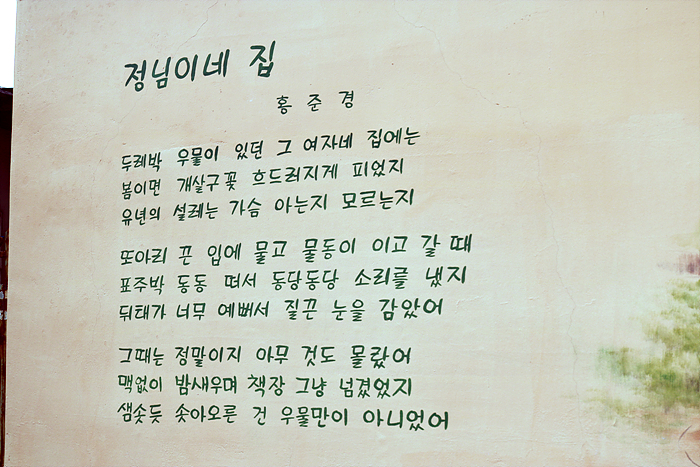 정님이네 집
홍준경
두레박 우물이 있던 그 여자네 집에는
봄이면 개살구꽃 흐드러지게 피었지
유년의 설레는 가슴 아는지 모르는지
또아리 끈 입에 물고 물동이 이고 갈 때
표주박 동동 떠서 동당동당 소리를 냈지
뒤태가 너무 예뻐서 질끈 눈을 감았어
그때는 정말이지 아무 것도 몰랐어
맥없이 밤새우며 책장 그냥 넘겼었지
샘솟듯 솟아오른 건 우물만이 아니었어